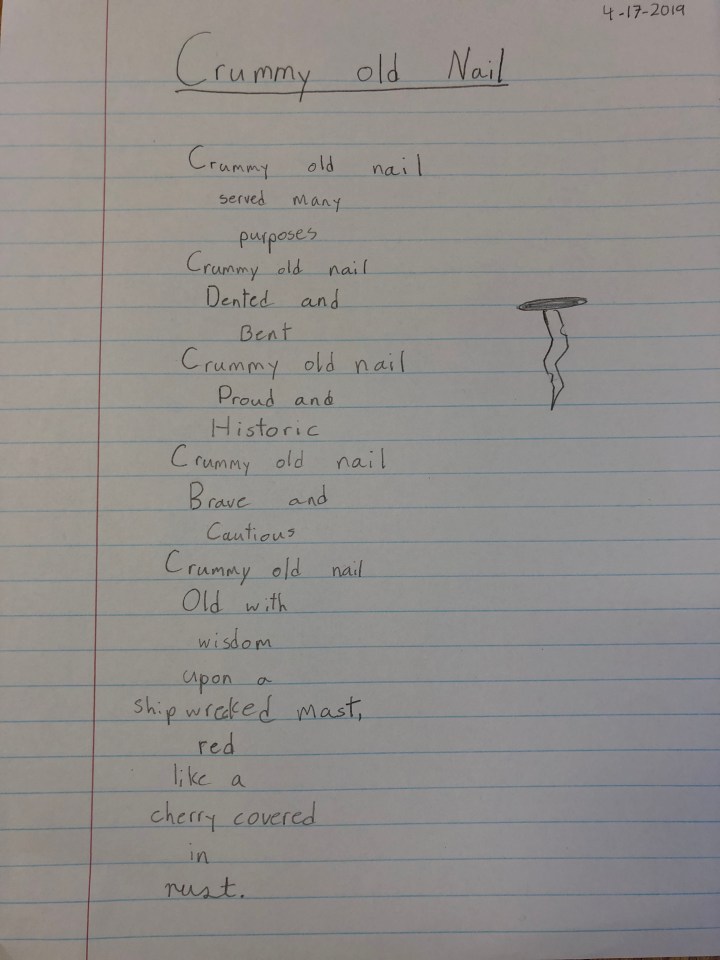 4-17-2019
Crummy old Nail
Crummy old nail
served many
purposes
Crummy old nail
Dented and
Bent
Crummy old nail
Proud and
Historic
Crummy old nail
Brave and
Cautious
Crummy old nail
Old with
wisdom
upon a
shipwrecked mast,
red
like a
cherry covered
in
rust.